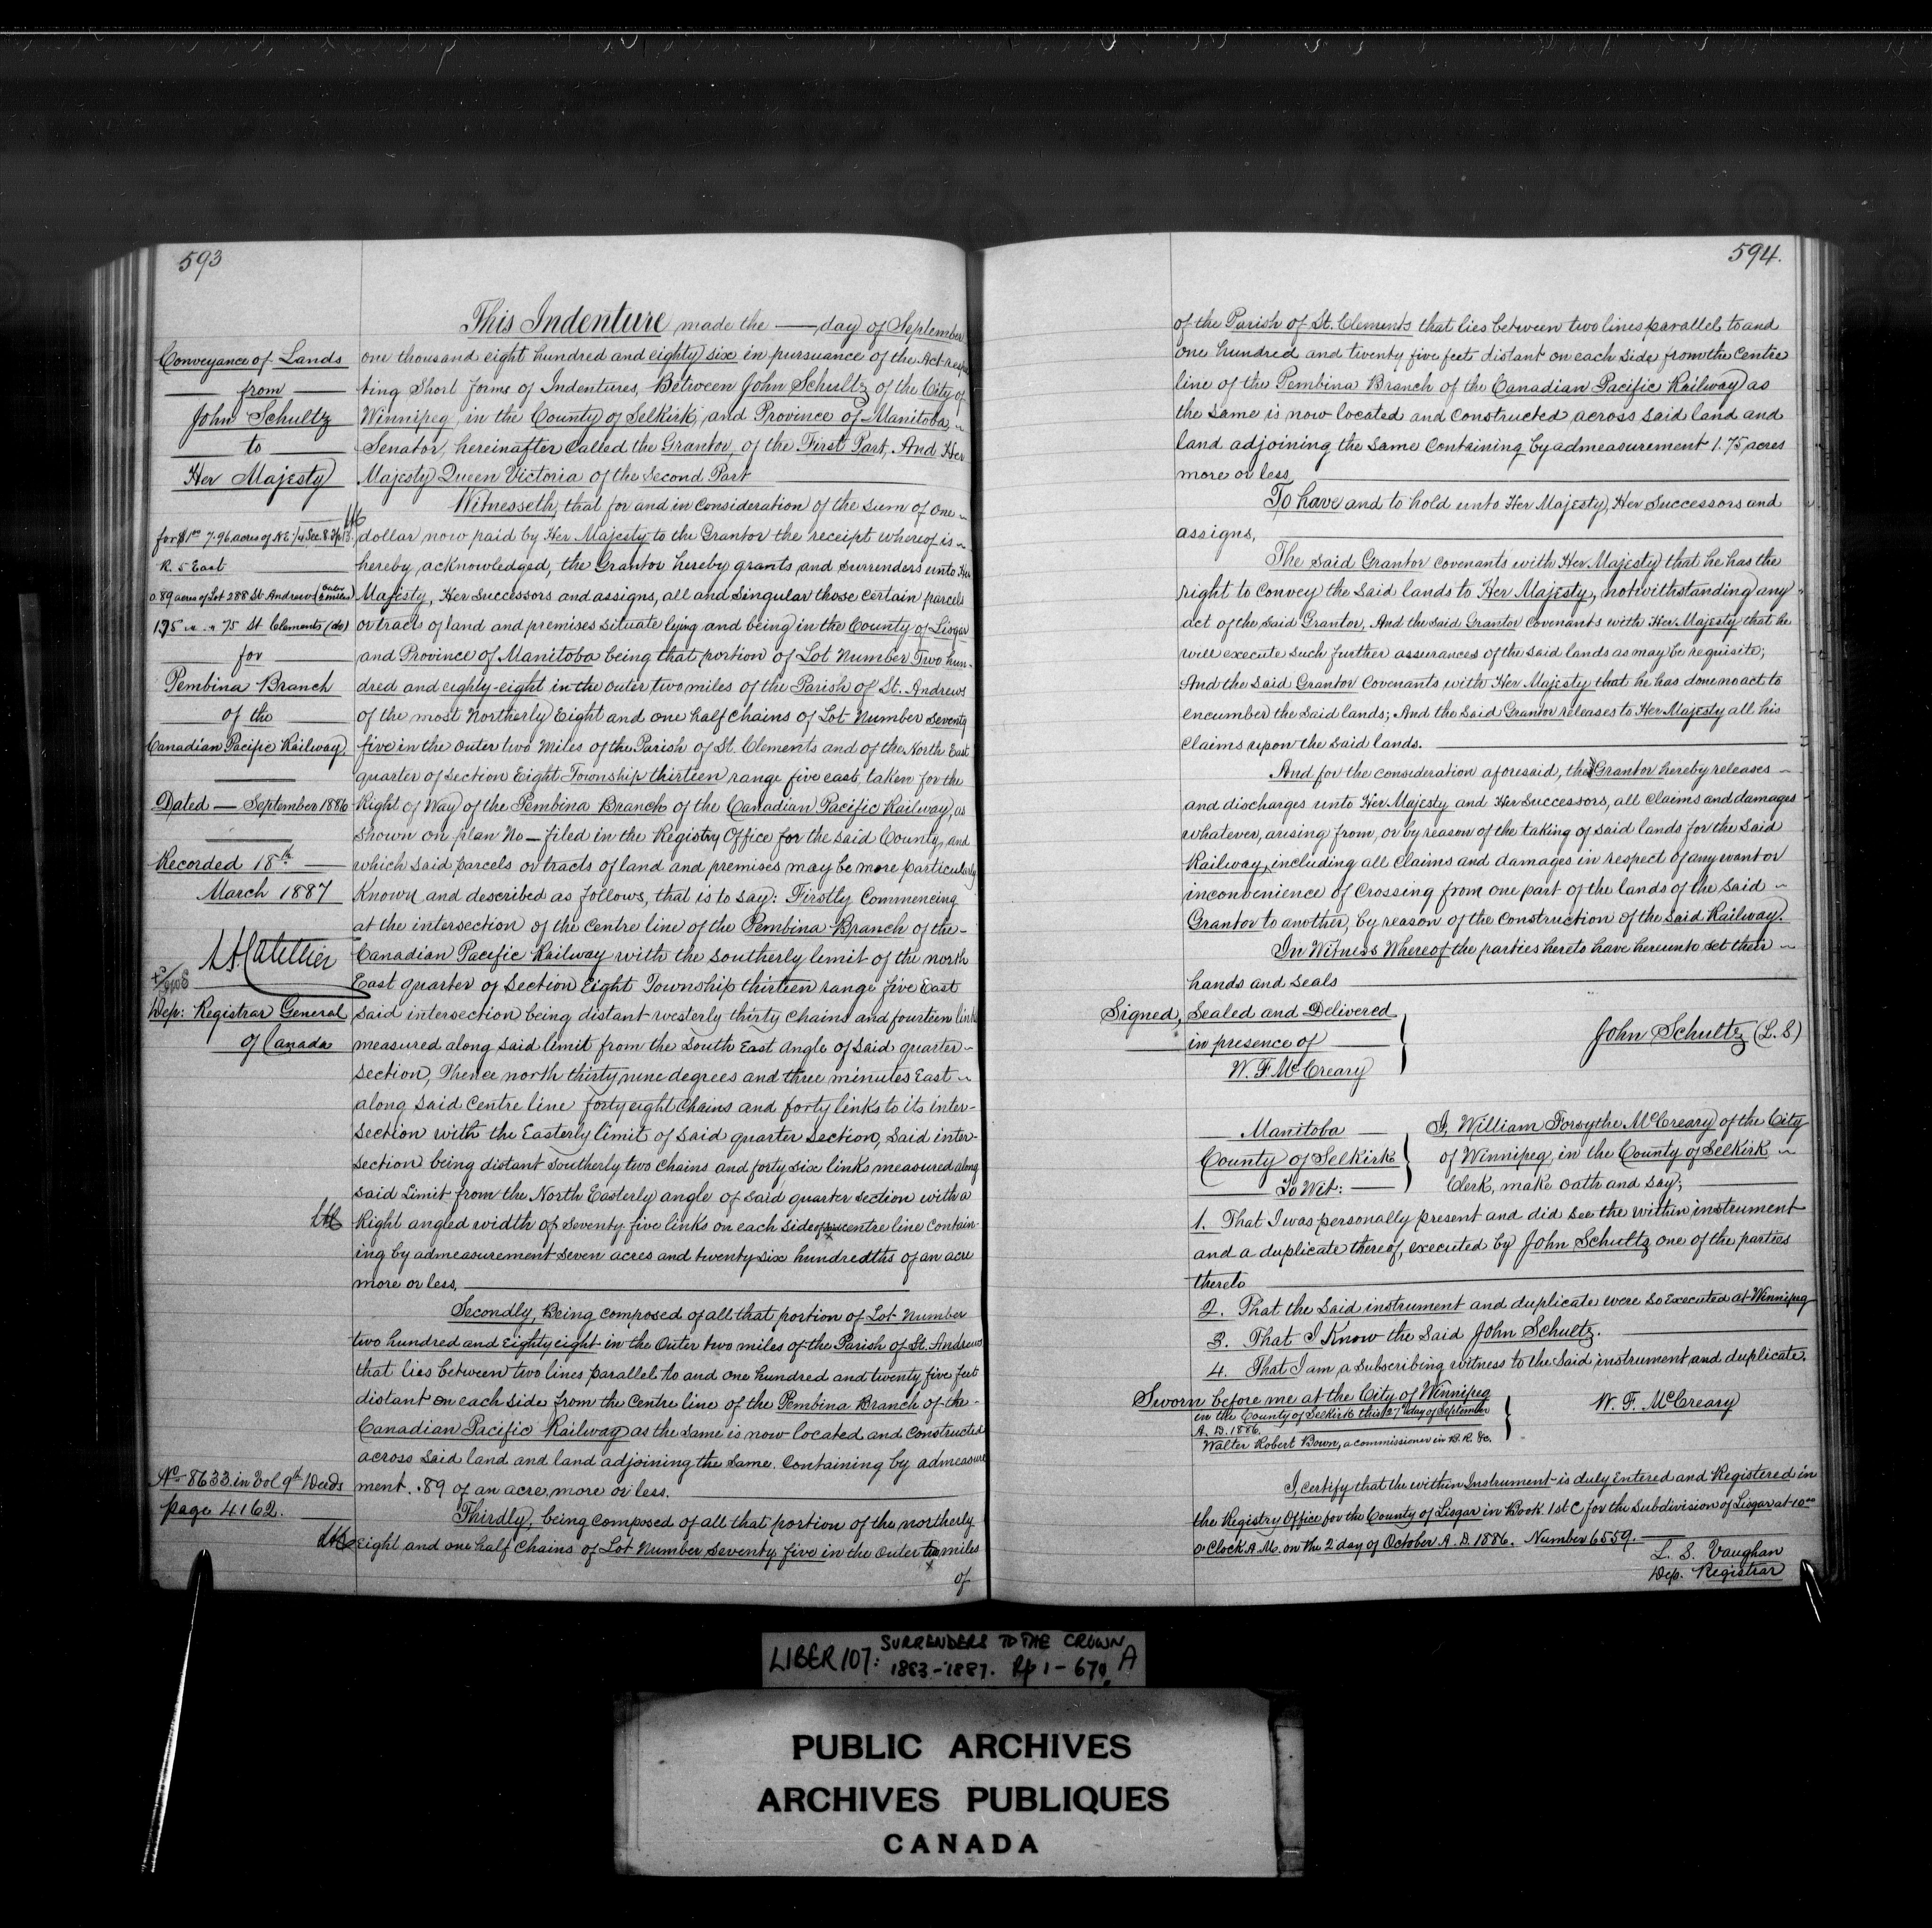 593
Conveyance of Lands
from
John Schultz
to
Her Majesty
for $1.00 7.96 acres of N.E. 1/4 Sec. 8 Tp 13
R. 5 East
0.89 acres of Lot 288 St Andrews (outer 2 miles)
1.75 " " 75 St Clements (do)
for
Pembina Branch
of the
Canadian Pacific Railway.
Dated — September 1886
Recorded 18th
March 1887
Dep: Registrar General
of Canada
No 8633 in Vol 9th Deeds
page 4162.
This Indenture made the — day of September
one thousand eight hundred and eighty six in pursuance of the Act respec
ting Short forms of Indentures, Between John Schultz of the City of
Winnipeg, in the County of Selkirk, and Province of Manitoba,
Senator, hereinafter called the Grantor, of the First Part, And Her
Majesty Queen Victoria of the Second Part
Witnesseth, that for and in consideration of the sum of one
dollar now paid by Her Majesty to the Grantor the receipt whereof is
hereby acknowledged, the Grantor hereby grants and surrenders unto Her
Majesty, Her Successors and assigns, all and Singular those certain parcels
or tracts of land and premises situate lying and being in the County of Lisgar
and Province of Manitoba being that portion of Lot Number Two hun-
dred and eighty-eight in the outer two miles of the Parish of St. Andrews
of the most Northerly Eight and one half chains of Lot Number Seventy
five in the outer two miles of the Parish of St. Clements and of the North East
quarter of section Eight Township thirteen range five east, taken for the
Right of Way of the Pembina Branch of the Canadian Pacific Railway, as
shown on plan No — filed in the Registry Office for the said County, and
which said parcels or tracts of land and premises may be more particularly
Known and described as follows, that is to say: Firstly Commencing
at the intersection of the centre line of the Pembina Branch of the -
Canadian Pacific Railway with the Southerly limit of the north
East quarter of Section Eight Township thirteen range five East
said intersection being distant westerly thirty chains and fourteen links
measured along said limit from the South East angle of said quarter -
section, Thence north thirty nine degrees and three minutes East
along said centre line forty eight chains and forty links to its inter-
section with the Easterly limit of said quarter section, said inter-
section being distant southerly two chains and forty six links measured along
said Limit from the North Easterly angle of said quarter section with a
Right angled width of seventy five links on each side of said centre line contain-
ing by admeasurement seven acres and twenty six hundredths of an acre
more or less,
Secondly, Being composed of all that portion of Lot Number
two hundred and Eighty eight in the Outer two miles of the Parish of St. Andrews
that lies between two lines parallel to and one hundred and twenty five feet
distant on each side from the centre line of the Pembina Branch of the -
Canadian Pacific Railway as the same is now located and constructed
across said land and land adjoining the same. Containing by admeasure
ment. .89 of an acre, more or less.
Thirdly, being composed of all that portion of the northerly
Eight and one half Chains of Lot Number seventy five in the outer two miles
of
594.
of the Parish of St. Clements that lies between two lines parallel to and
one hundred and twenty five feet distant on each side from the Centre
line of the Pembina Branch of the Canadian Pacific Railway as
the same is now located and constructed across said land and
land adjoining the same containing by admeasurement 1.75 acres
more or less
To have and to hold unto Her Majesty, Her Successors and
assigns,
The said Grantor covenants with Her Majesty that he has the
right to convey the said lands to Her Majesty, notwithstanding any
act of the said Grantor, And the said Grantor Covenants with Her Majesty that he
will execute such further assurances of the said lands as may be requisite;
And the said Grantor covenants with Her Majesty that he has done no act to
encumber the said lands; And the said Grantor releases to Her Majesty all his
claims upon the said lands.
And for the consideration aforesaid, the Grantor hereby releases
and discharges unto Her Majesty and Her Successors, all claims and damages
whatever, arising from, or by reason of the taking of said lands for the said
Railway, including all claims and damages in respect of any want or
inconvenience of crossing from one part of the lands of the said
Grantor to another, by reason of the construction of the said Railway.
In Witness Whereof the parties hereto have hereunto set their
hands and seals
Signed, Sealed and Delivered
in presence of
W. F. McCreary
John Schultz (L.S)
Manitoba
County of Selkirk
To Wit:
I, William Forsythe McCreary of the City
of Winnipeg, in the County of Selkirk
Clerk, make oath and say;
1. That I was personally present and did see the within instrument
and a duplicate thereof, executed by John Schultz one of the parties
thereto
2. That the said instrument and duplicate were so executed at Winnipeg
3. That I Know the said John Schultz.
4. That I am a subscribing witness to the said instrument and duplicate.
Sworn before me at the City of Winnipeg
in the County of Selkirk this 27th day of September
A. D. 1886.
Walter Robert Bown, a commissioner in B. R. &c.
W. F. McCreary
I, certify that the within Instrument is duly Entered and Registered in
the Registry Office for the County of Lisgar in Book 1st C for the Subdivision of Lisgar at 10.00
o'Clock A.M. on the 2 day of October A. D. 1886. Number 6559.
L. S. Vaughan
Dep. Registrar
LIBER 107: SURRENDERS TO THE CROWN, A
1883-1887. Pp 1-670.
PUBLIC ARCHIVES
ARCHIVES PUBLIQUES
CANADA